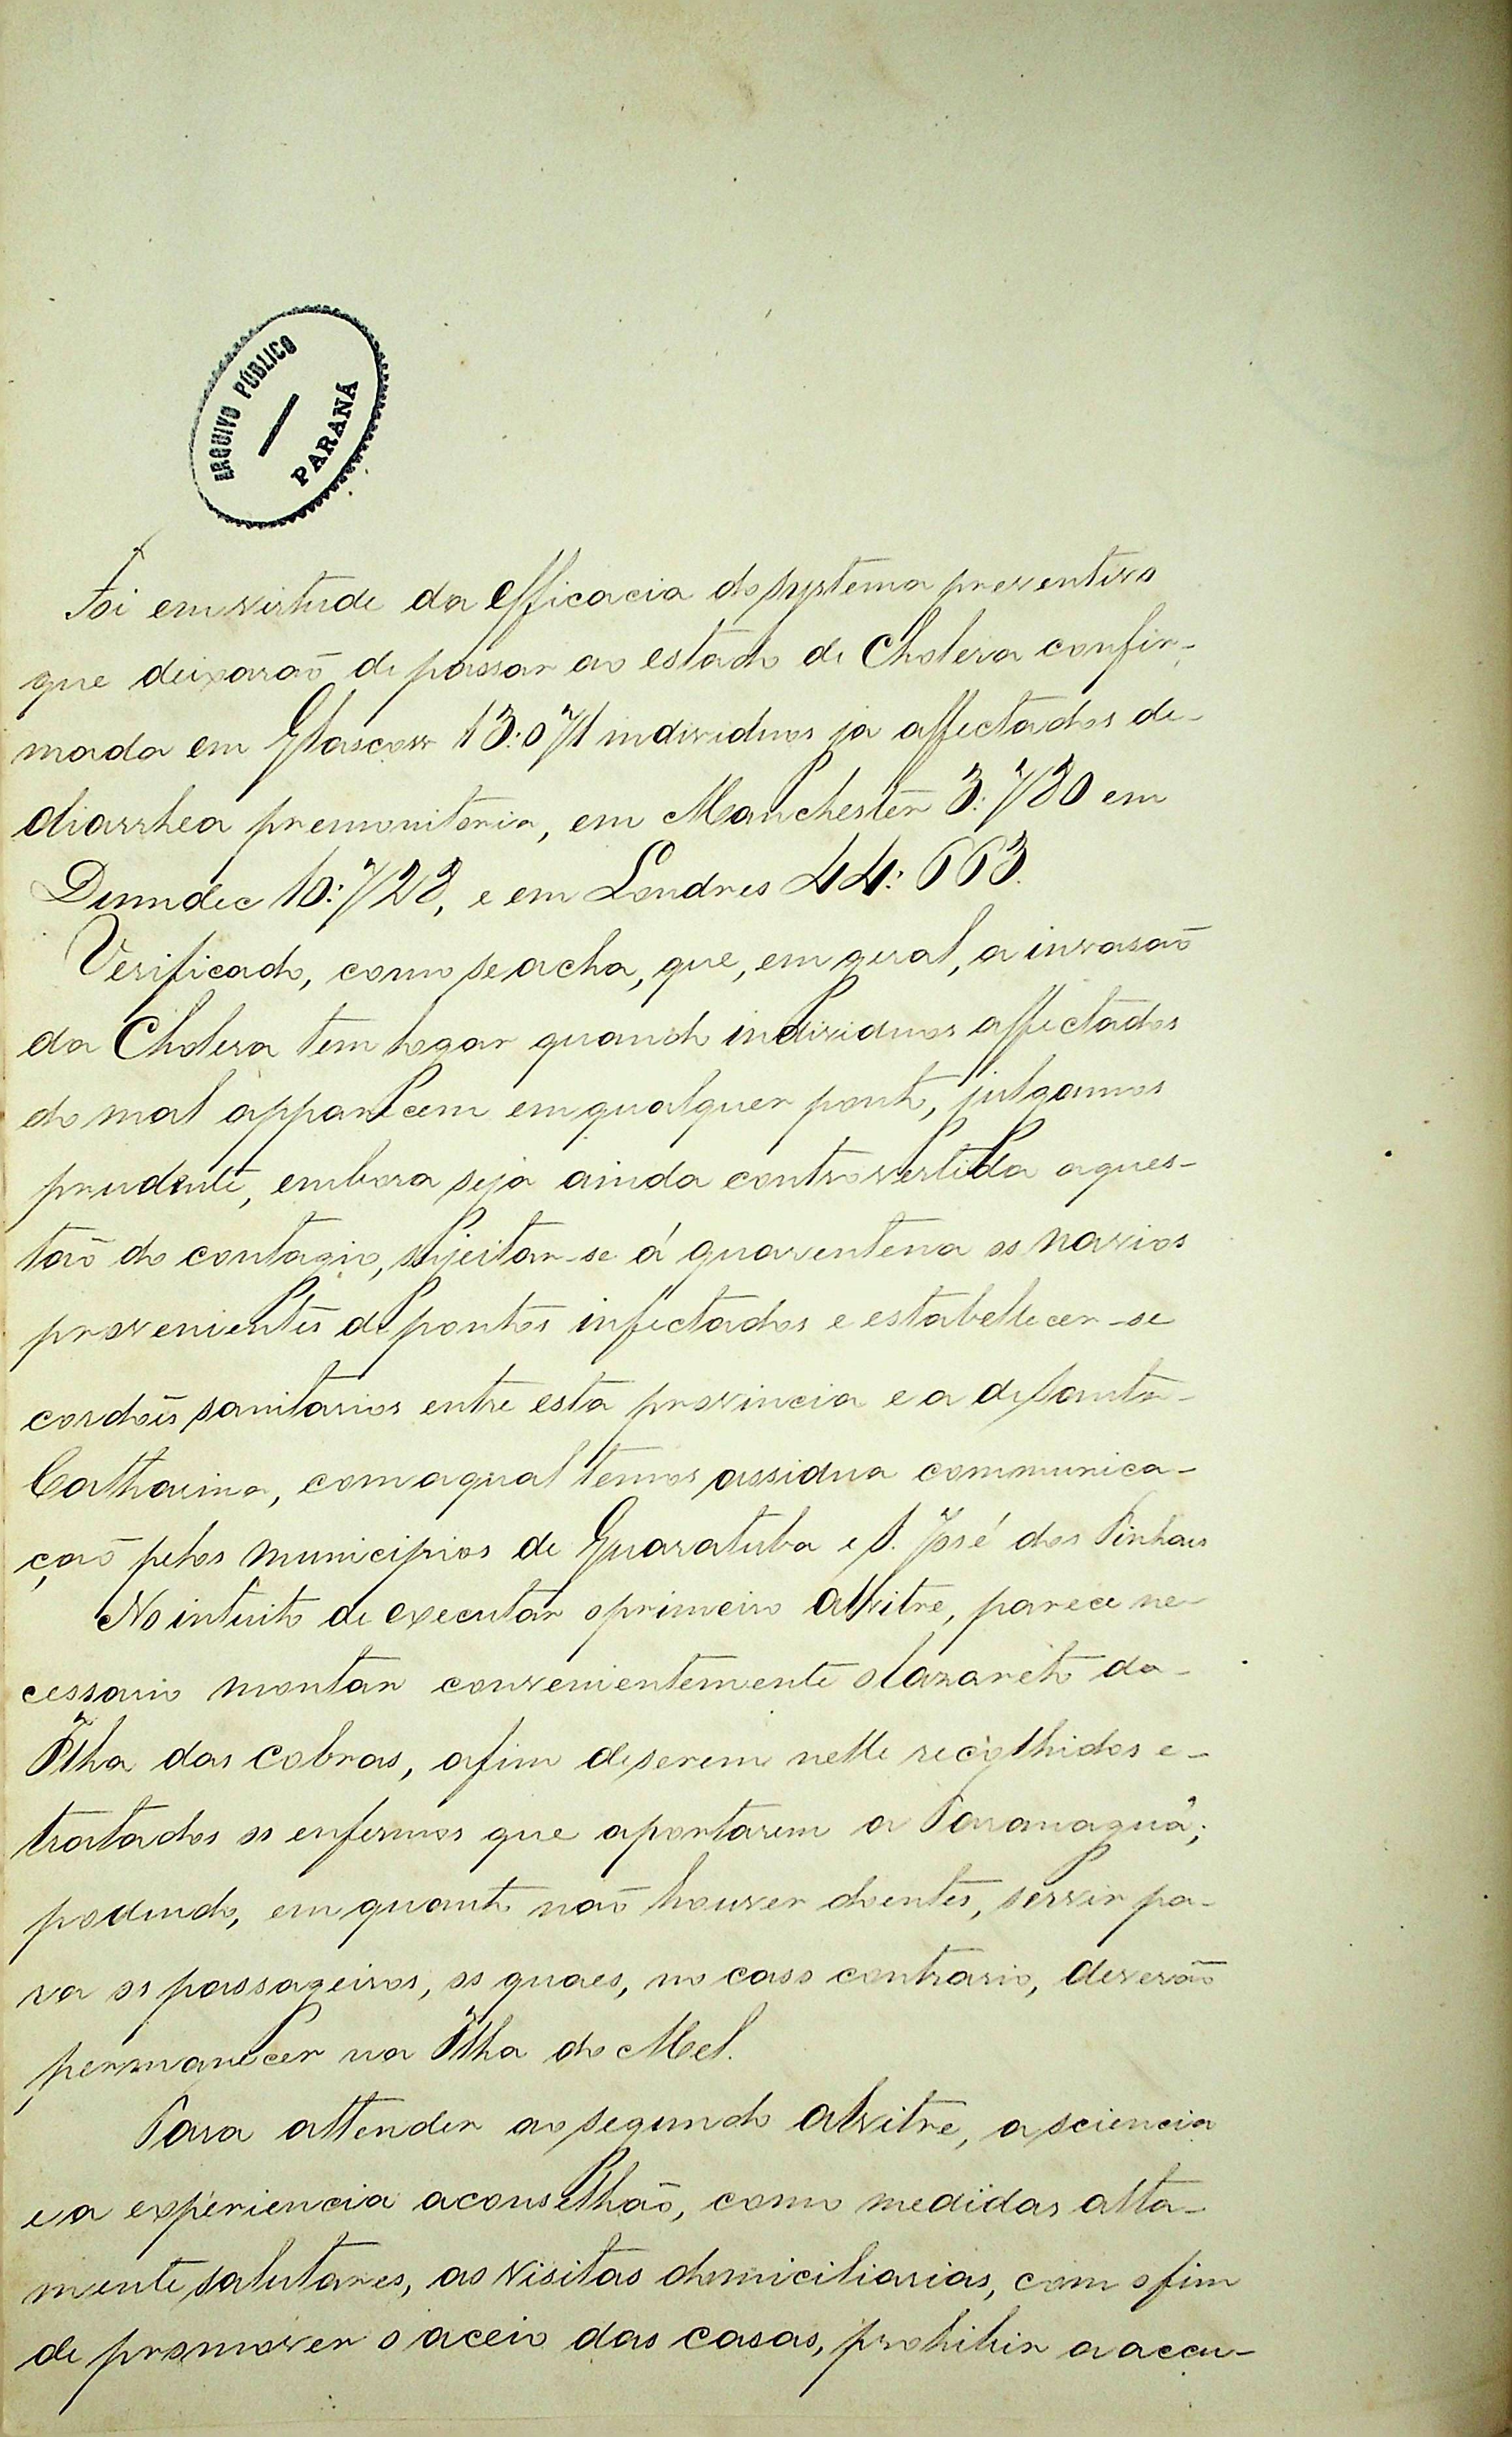 ARQUIVO PÚBLICO
PARANÁ
Foi em virtude da efficacia do systema preventivo
que deixarão de passar ao estado de Cholera confir-
mada em Glascow 13:071 individuos ja affectados de
diarrhea premonitoria, em Manchester 3:780 em
Dunndec 10:728, e em Londres 44:663.
Verificado, como se acha, que, em geral, a invasaõ
da Cholera tem logar quando individuos affectados
do mal apparecem em qualquer ponto, julgamos
prudente, embora seja ainda controvertida a ques-
taõ do contagio, sujeitar-se á quarentena os navios
provenientes de pontos infectados e estabellecer-se
cordões sanitarios entre esta provincia e a de Santa
Catharina, com a qual temos assidua communica-
çaõ pelos municipios de Guaratuba e S. José dos Pinhaes
No intuito de executar o primeiro alvitre, parece ne-
cessario montar convenientemente o lazareto da
Ilha das Cobras, a fim de serem nelle recolhidos e
tratados os enfermos que aportarem a Paranaguá;
podendo, em quanto naõ houver doentes, servir pa-
ra os passageiros, os quaes, no caso contrario, deverão
permanecer na Ilha do Mel.
Para attender ao segundo alvitre, a sciencia
e a experiencia aconselhão, como medidas alta-
mente salutares, as visitas domiciliarias, com o fim
de promover o aceio das casas, prohibir a accu-